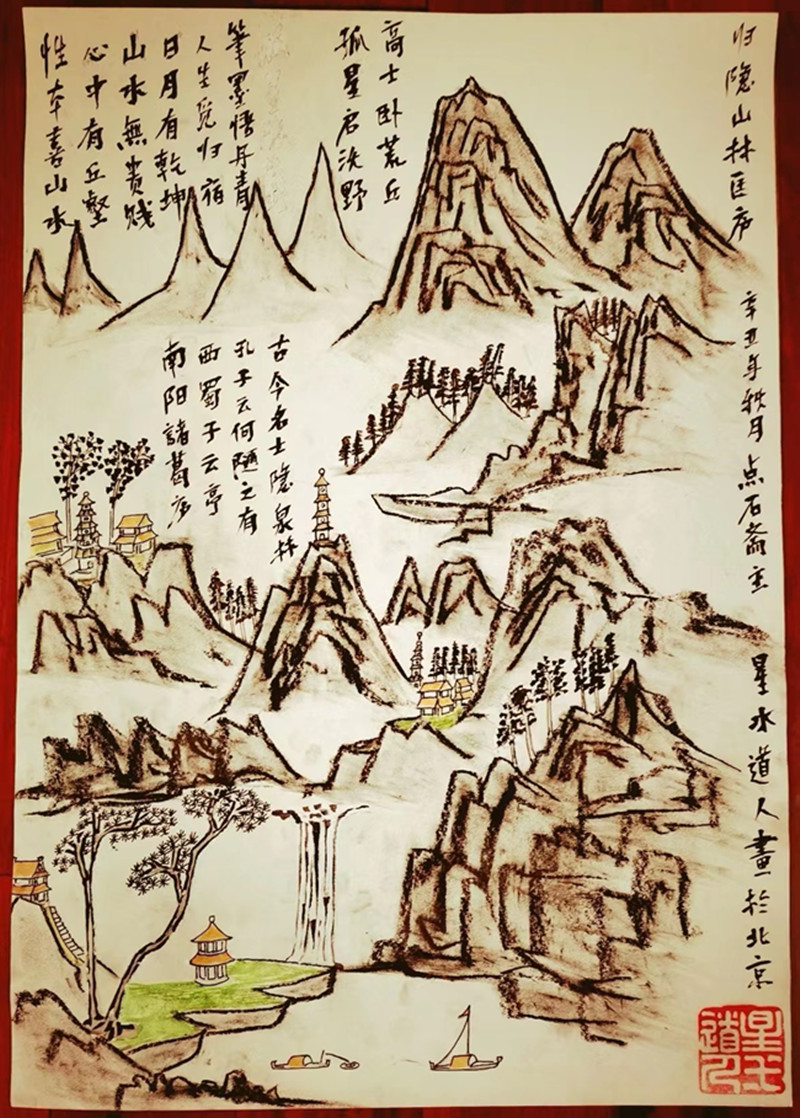 归隐山林匡庐
辛丑年秋月 点石斋主
星水道人畫於北京
高士卧荒丘
孤星启沃野
筆墨悟丹青
人生觅归宿
日月有乾坤
山水無贵贱
心中有丘壑
性本喜山水
古今名士隐泉林
孔子云何陋之有
西蜀子云亭
南阳諸葛庐
星水
道人